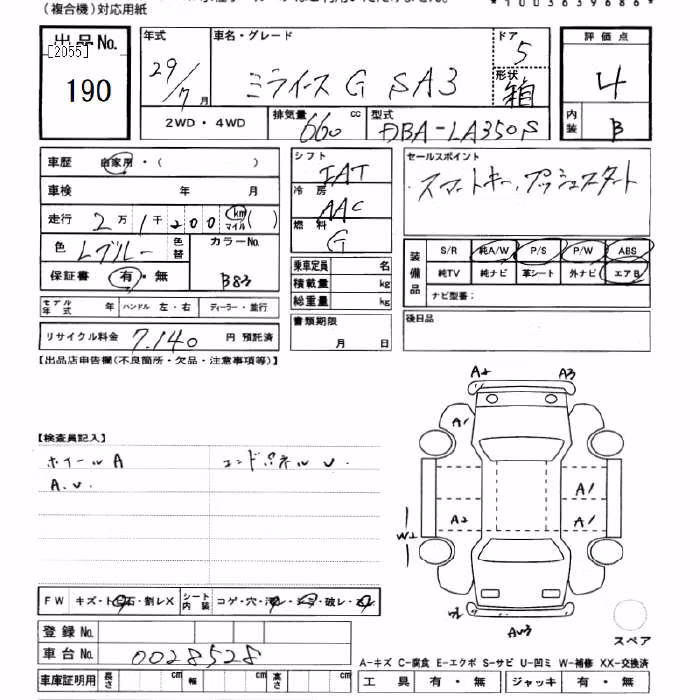 (複合機)対応用紙
出品No. 年式 車名・グレード ドア 評価点
[2055] 29/7月 ミライース G SA3 5 4
190 形状 箱
2WD・4WD 排気量 660 cc 型式 DBA-LA350S 内装 B
車歴 自家用・( ) シフト IAT セールスポイント
車検 年 月 冷房 AAC スマートキー.プッシュスタート
走行 2万1千200 km マイル ( ) 燃料 G
色 Lブルー 色替 カラーNo. B83
保証書 有・無
装備品 S/R 純A/W P/S P/W ABS
純TV 純ナビ 革シート 外ナビ エアB
ナビ型番:
乗車定員 名
積載量 kg
総重量 kg
モデル年式 年 ハンドル 左・右 ディーラー・並行
書類期限 月 日 後日品
リサイクル料金 7.140 円 預託済
【出品店申告欄(不良箇所・欠品・注意事項等)】
A2 A3
A1
【検査員記入】
ホイールA コンドパネル U.
A.U.
A1
A2 A1
W2
FW キズ・トビ石・割レX シート内装 コゲ・穴・汚レ・シミ・破レ・スレ
W2 AU3
スペア
登録No.
車台No. 0028528
A-キズ C-腐食 E-エクボ S-サビ U-凹ミ W-補修 XX-交換済
車庫証明用 長さ cm 幅 cm 高さ cm 工具 有・無 ジャッキ 有・無